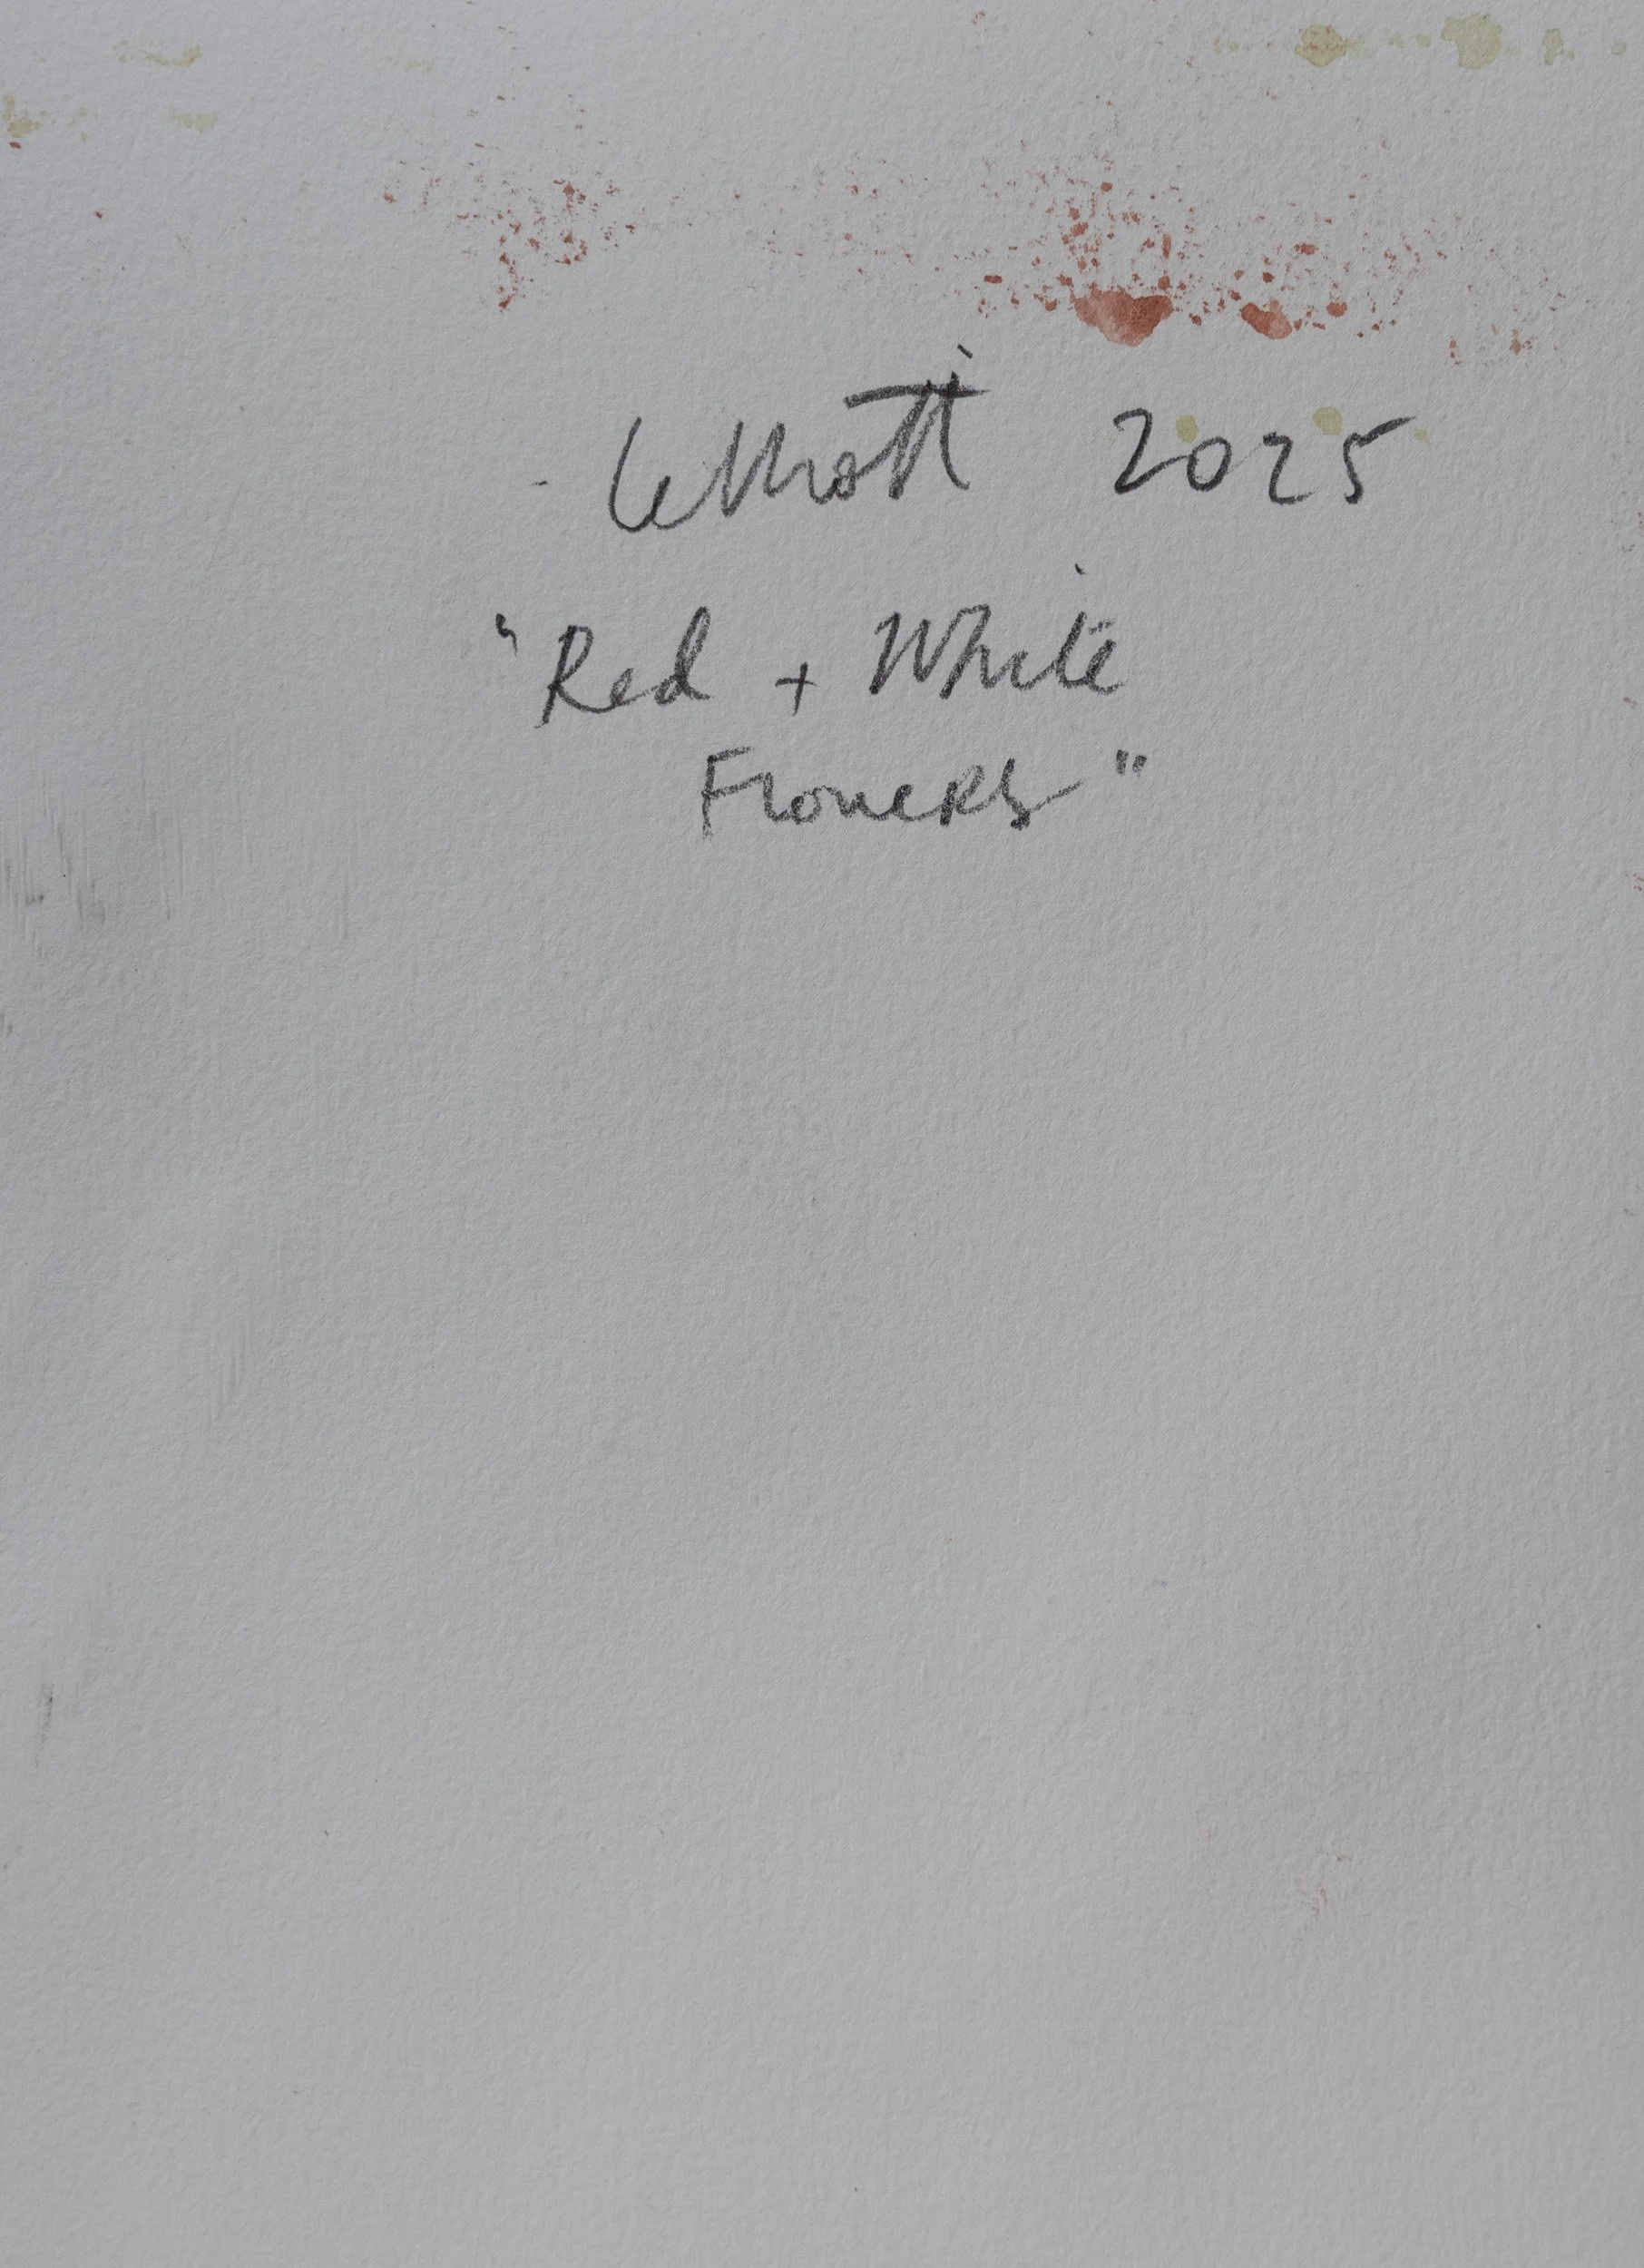 Elliott 2025
"Red + White
Flowers"